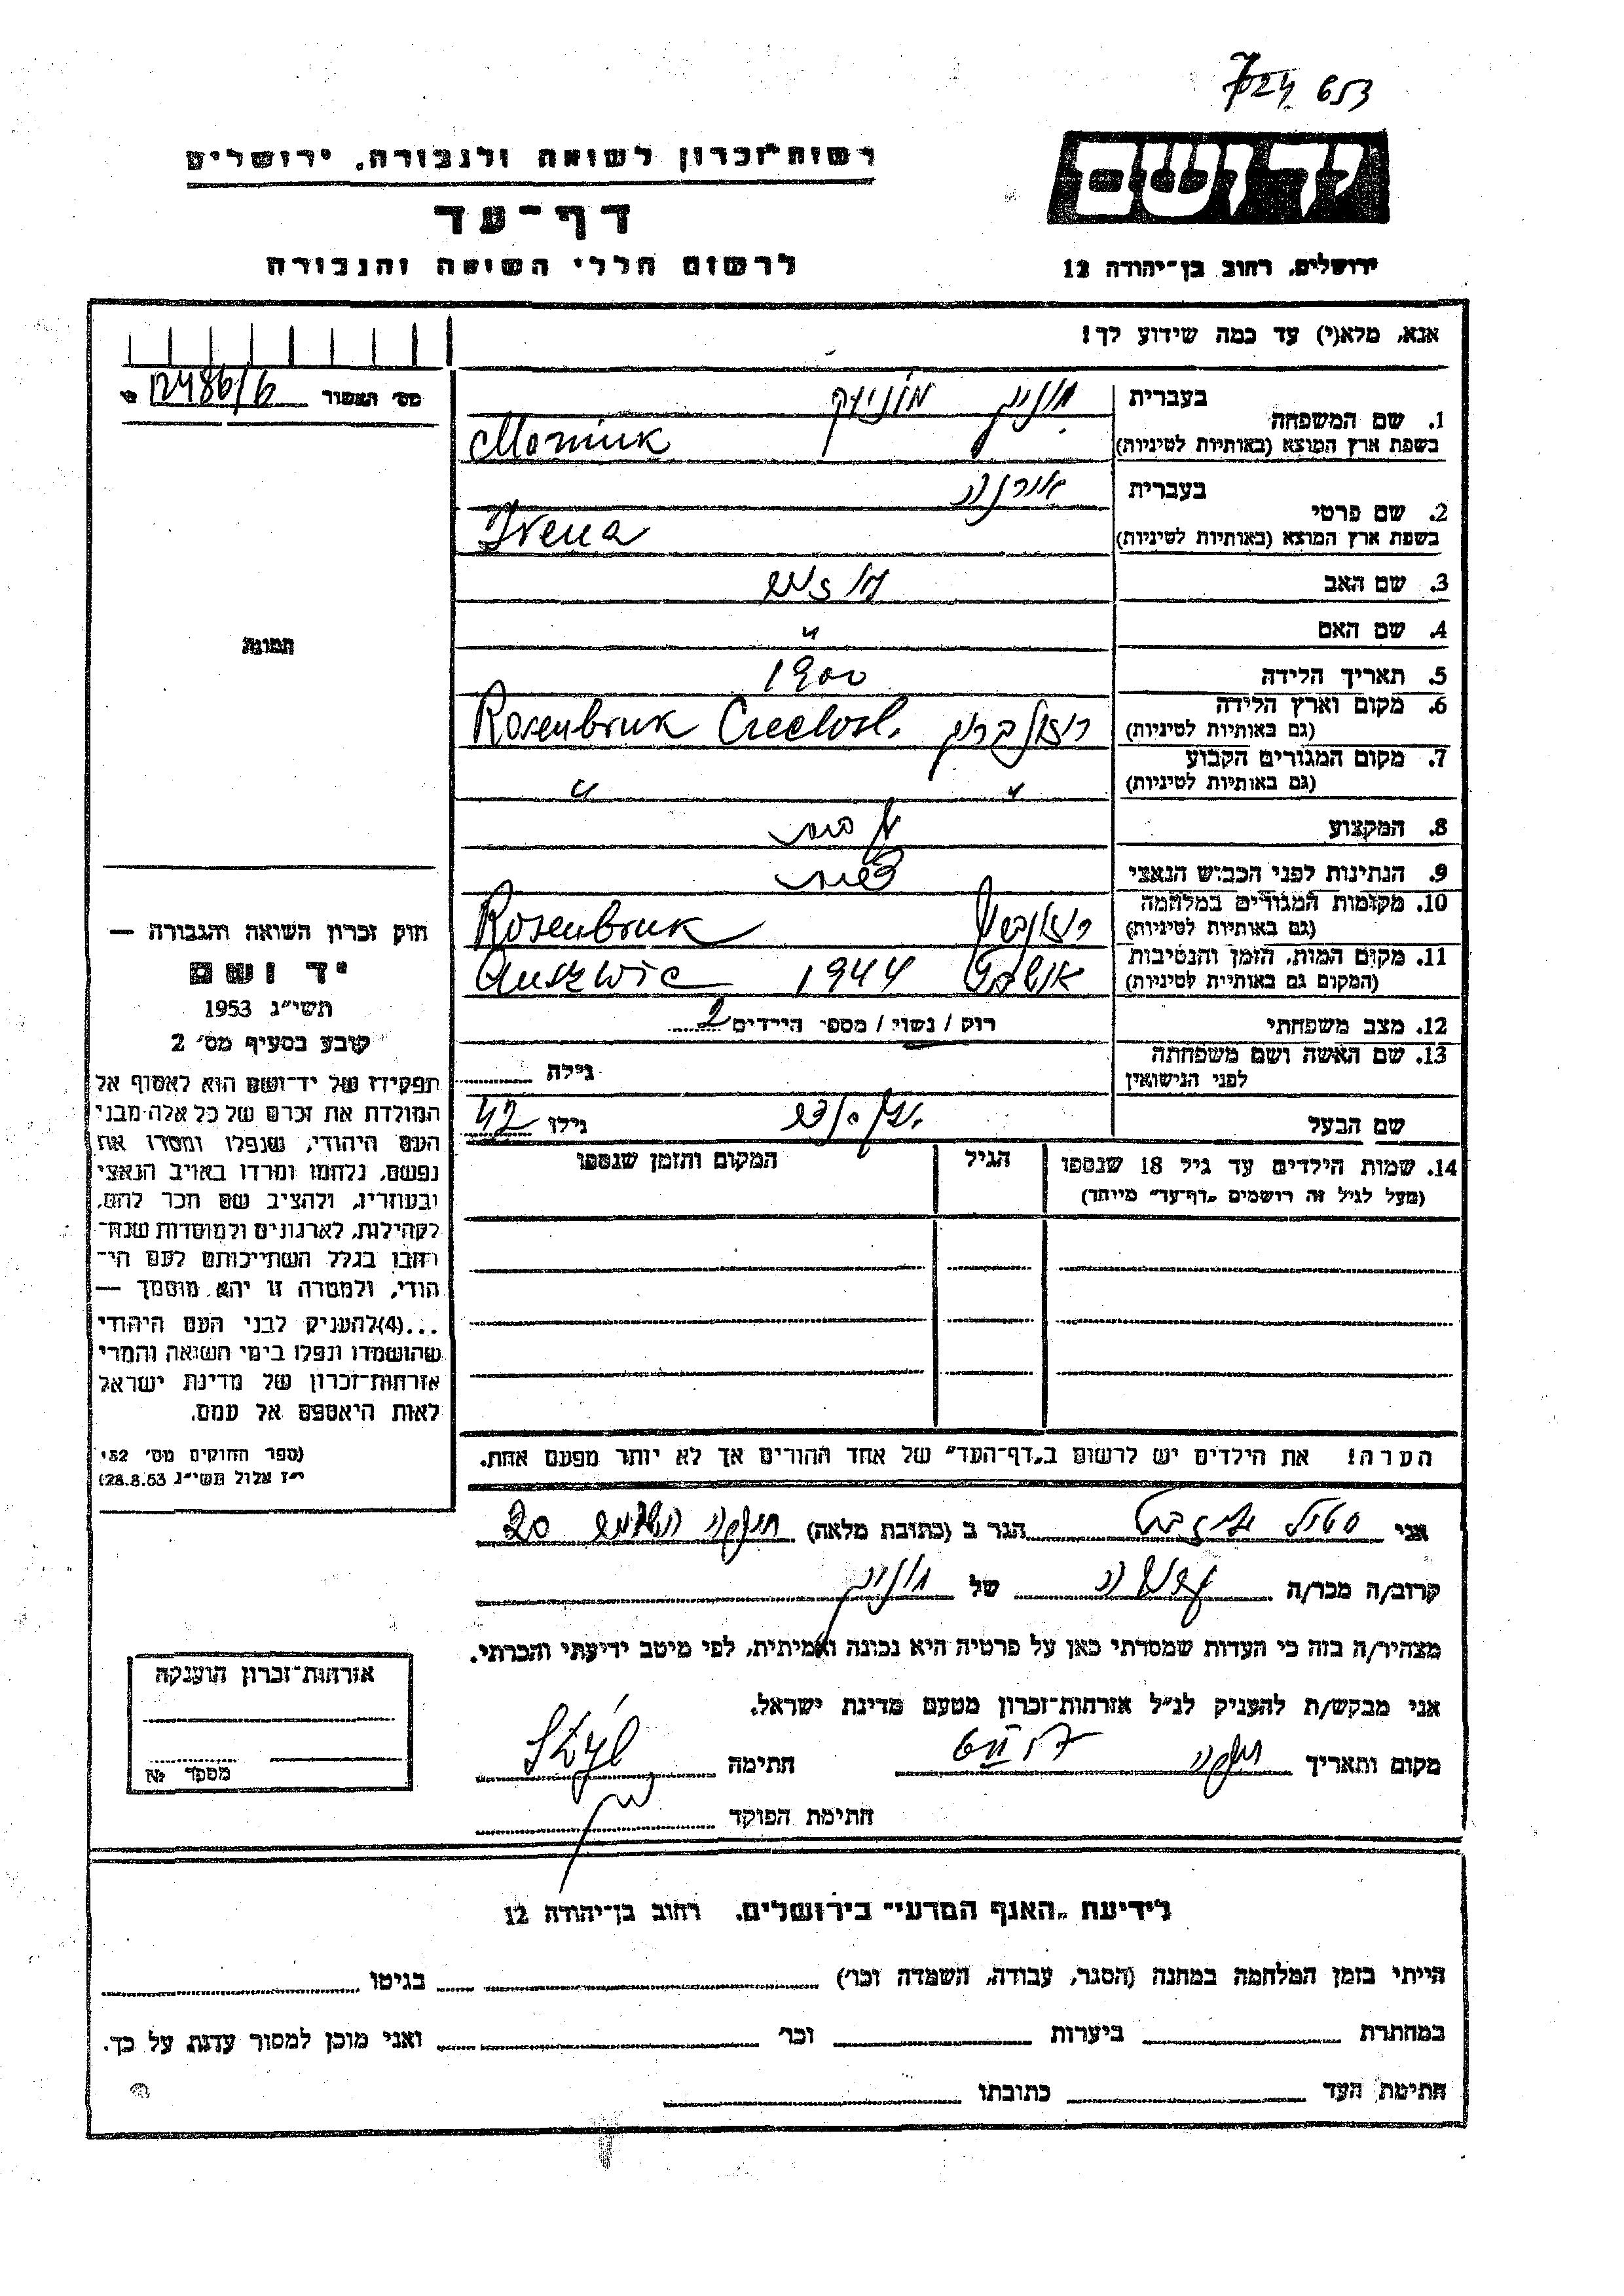 7024 653
יד ושם
רשות־זכרון לשואה ולגבורה, ירושלים
דף־עד
לרשום חללי השואה והגבורה
ירושלים, רחוב בן־יהודה 12
אנא, מלא(י) עד כמה שידוע לך!
מס׳ האשור 12486/6
1. שם המשפחה
בעברית מוניוק
בשפת ארץ המוצא (באותיות לטיניות) Moniuk
2. שם פרטי
בעברית אירנה
בשפת ארץ המוצא (באותיות לטיניות) Irena
3. שם האב
4. שם האם "
5. תאריך הלידה 1900
6. מקום וארץ הלידה (גם באותיות לטיניות) Rosenbruk Czechosl.
7. מקום המגורים הקבוע (גם באותיות לטיניות) " "
8. המקצוע
9. הנתינות לפני הכבוש הנאצי
10. מקומות המגורים במלחמה (גם באותיות לטיניות) Rosenbruk
11. מקום המות, הזמן והנסיבות (המקום גם באותיות לטיניות) 1944 Auszwic
12. מצב משפחתי רווק / נשוי / מספר הילדים 2
13. שם האשה ושם משפחתה לפני הנישואין גילה
שם הבעל גילו 42
14. שמות הילדים עד גיל 18 שנספו
(מעל לגיל זה רושמים „דף־עד״ מיוחד)
הגיל
המקום והזמן שנספו
הערה! את הילדים יש לרשום ב„דף־העד״ של אחד ההורים אך לא יותר מפעם אחת.
תמונה
חוק זכרון השואה והגבורה —
יד ושם
תשי״ג 1953
קובע בסעיף מס׳ 2
תפקידו של יד־ושם הוא לאסוף אל
המולדת את זכרם של כל אלה מבני
העם היהודי, שנפלו ומסרו את
נפשם, נלחמו ומרדו באויב הנאצי
ובעוזריו, ולהציב שם וזכר להם,
לקהילות, לארגונים ולמוסדות שנח־
רבו בגלל השתייכותם לעם הי־
הודי, ולמטרה זו יהא מוסמך —
...(4)להעניק לבני העם היהודי
שהושמדו ונפלו בימי השואה והמרי
אזרחות־זכרון של מדינת ישראל
לאות היאספם אל עמם.
(ספר החוקים מס׳ 132
י״ז אלול תשי״ג 28.8.53)
אני הגר ב (כתובת מלאה) חיפה 20
קרוב/ה מכר/ה של מוניוק
מצהיר/ה בזה כי העדות שמסרתי כאן על פרטיה היא נכונה ואמיתית, לפי מיטב ידיעתי והכרתי.
אני מבקש/ת להעניק לנ״ל אזרחות־זכרון מטעם מדינת ישראל.
מקום ותאריך חיפה חתימה
חתימת הפוקד
אזרחות־זכרון הוענקה
מספר №
לידיעת „האגף המדעי״ בירושלים, רחוב בן־יהודה 12
הייתי בזמן המלחמה במחנה (הסגר, עבודה, השמדה וכו׳) בגיטו
במחתרת ביערות וכו׳ ואני מוכן למסור עדות על כך.
חתימת העד כתובתו